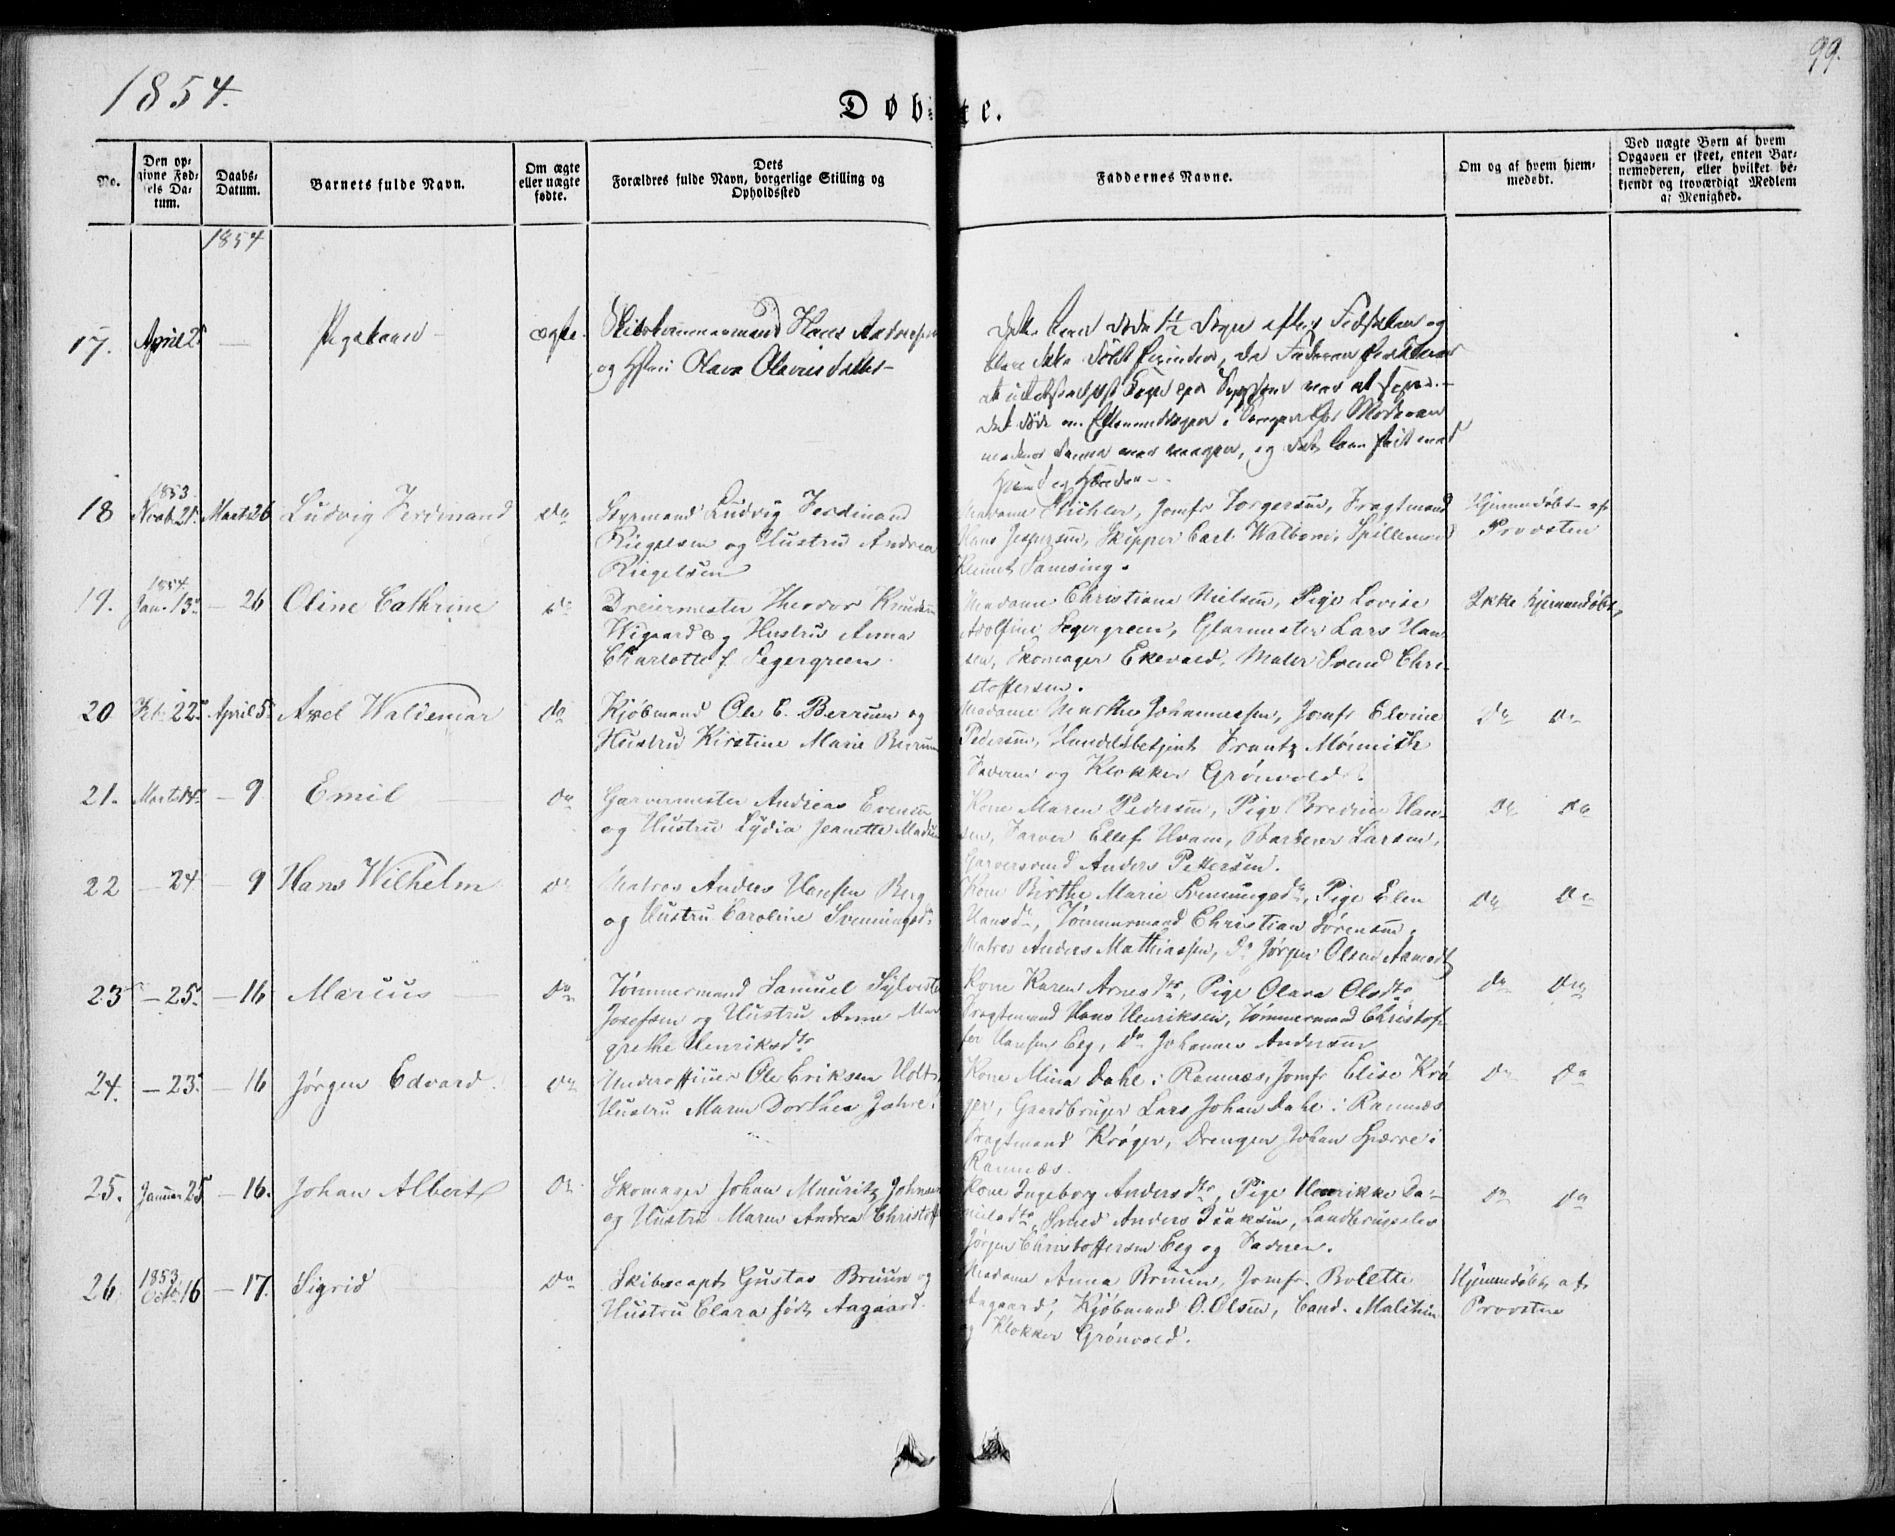 1854.
99.
Døbte.
No.
Den opgivne Fødsels Datum.
Daabs-Datum.
Barnets fulde Navn.
Om ægte eller uægte fødte.
Dets Forældres fulde Navn, borgerlige Stilling og Opholdssted
Faddernes Navne.
Om og af hvem hjemmedøbt.
Ved uægte Børn af hvem Opgaven er skeet, enten Barnemoderen, eller hvilket bekjendt og troværdigt Medlem af Menighed.
1854
17. April 2 — Pigebarn — ægte. Skibstømmermand Hans Andersen
og Hstru Olava Olavesdatter —
Dette Barn døde 1½ Døgn efter Fødselen og
blev ikke døbt
18 1853 Novb. 21. Marts 26 Ludvig Ferdinand do Styrmand Ludvig Ferdinand
Riegelsen og Hustru Andrea
Riegelsen
Madame Bichler, Jomfr Torgersen, Fragtmand
Hans Jespersen, Skipper Carl Walbom, Spillemand
Klemet Samsing.
Hjemmedøbt af
Provsten
19. 1854 Jan. 13. — 26 Oline Cathrine do Dreiermester Theodor Knudsen
Wigaard og Hustru Anna
Charlotte f. Segergreen.
Madame Christiane Nielsen, Pige Lovise
Adolfine Segergreen, Glarmester Lars Han-
sen, Skomager Ekevald, Maler Svend Chri-
stoffersen.
Ikke hjemmedøbt,
20 Feb. 22. April 5 Axel Waldemar do Kjøbmand Ole C. Berrum og
Hustru Kirstine Marie Berrum
Madame Marthe Johannessen, Jomfr Elvine
Pedersen, Handelsbetjent Frantz Mønnich
Faderen og Klokker Grønvold.
do do
21. Marts 14. — 9 Emil — do Garvermester Andreas Evensen
og Hustru Lydia Jeanette Madsen
Kone Maren Pedersen, Pige Bredine Han-
sen, Farver Ellef Hvam, Barberer Larsen,
Garversvend Anders Pettersen.
do do
22 — 24 — 9 Hans Wilhelm do Matros Anders Hansen Berg
og Hustru Caroline Svenningsdr.
Kone Birthe Marie Svenningsdr, Pige Elen
Hansdr, Tømmermand Christian Sørensen,
Matros Anders Mathiassen, Do Jørgen Olsen Aamodt
do do
23 — 25. — 16 Marius — do Tømmermand Samuel Sylvester
Josefsen og Hustru Anne Mar
grethe Henriksdtr
Kone Karen Arnesdtr, Pige Olava Olsdtr
Fragtmand Hans Henriksen, Tømmermand Christof-
fer Hansen Eeg, Do Johannes Andersen
do do
24. — 23. — 16 Jørgen Edvard. do Underofficer Ole Eriksen Holt
Hustru Maren Dorthea Jahre.
Kone Mina Dahl i Ramnæs, Jomfr Elise Krø
ger, Gaardbruger Lars Johan Dahl i Ramnæs
Fragtmand Krøger, Drengen Johan Sperre i
Ramnæs.
do do
25. Januar 25 — 16. Johan Albert do Skomager Johan Mauritz Johnsen
og Hustru Maren Andrea Christof
Kone Ingeborg Andersdtr, Pige Henrikke Da-
nielsdtr, Smed Anders Isaksen, Landbrugselev
Jørgen Christoffersen Eeg og Faderen.
do do
26. 1853 Octbr. 16 — 17. Sigrid do Skibscapt. Gustav Bruun og
Hustru Clara født Aagaard.
Madame Anna Bruun, Jomfr. Bolette
Aagaard, Kjøbmand O. Olsen, Cand. Malthin
og Klokker Grønvold.
Hjemmedøbt af
Provsten